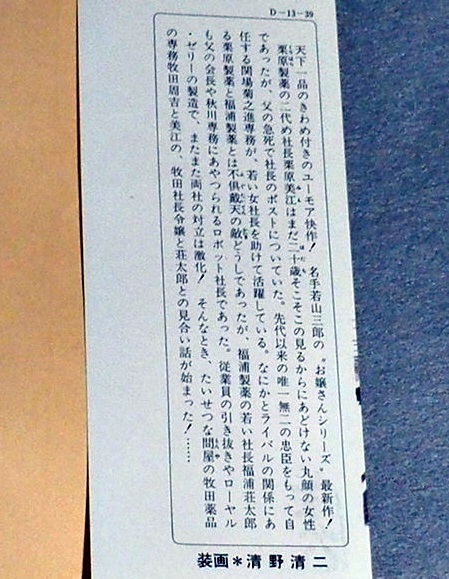 D-13-39
天下一品のきわめ付きのユーモア快作! 名手若山三郎の“お嬢さんシリーズ”最新作!
栗原製薬の二代め社長栗原美江はまだ二十歳そこそこの見るからにあどけない丸顔の女性
であったが、父の急死で社長のポストについていた。先代以来の唯一無二の忠臣をもって自
任する関場菊之進専務が、若い女社長を助けて活躍している。なにかとライバルの関係にあ
る栗原製薬と福浦製薬とは不倶戴天の敵どうしであったが、福浦製薬の若い社長福浦荘太郎
も父の会長や秋川専務にあやつられるロボット社長であった。従業員の引き抜きやローヤル
・ゼリーの製造で、またまた両社の対立は激化! そんなとき、たいせつな問屋の牧田薬品
の専務牧田周吉と美江の、牧田社長令嬢と荘太郎との見合い話が始まった!……
装画*清野清二